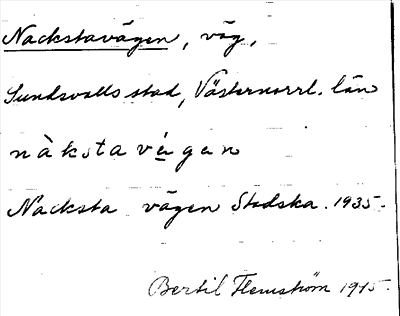 Nackstavägen, väg,
Sundsvalls stad, Västernorrl. län
nàkstavägen
Nacksta vägen Stadska. 1935.
Bertil Flemström 1975.